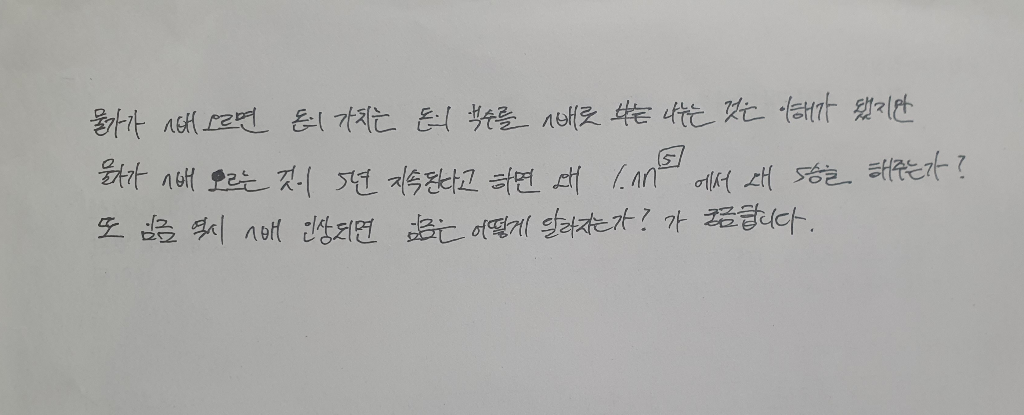 물가가 n배 오르면 돈의 가치는 돈의 액수를 n배로 나눈 나누는 것은 이해가 됐지만
물가가 n배 오르는 것이 5년 지속된다고 하면 왜 1.nn⁵ 에서 왜 5승을 해주는가?
또 임금 역시 n배 인상되면 임금은 어떻게 달라지는가? 가 궁금합니다.